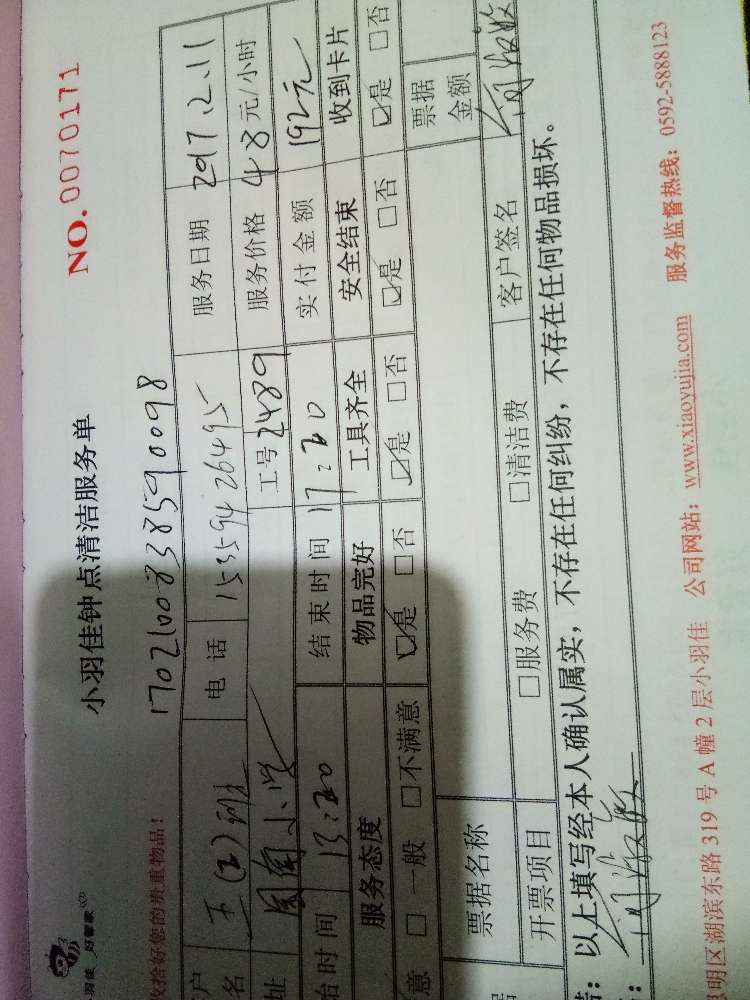 小羽佳钟点清洁服务单
NO.0070171
收拾好您的贵重物品！
1702100838590098
电话 15359426495 服务日期 2017.12.11
名 工号 2489 服务价格 48元/小时
址 小学
始时间 13:20 结束时间 17:20 实付金额 192元
服务态度 物品完好 工具齐全 安全结束 收到卡片
意 □一般 □不满意 ☑是 □否 ☑是 □否 ☑是 □否 ☑是 □否
票据名称 票据金额
开票项目 □服务费 □清洁费 客户签名
以上填写经本人确认属实，不存在任何纠纷，不存在任何物品损坏。
明区湖滨东路 319 号 A 幢 2 层小羽佳 公司网站：www.xiaoyujia.com 服务监督热线：0592-5888123